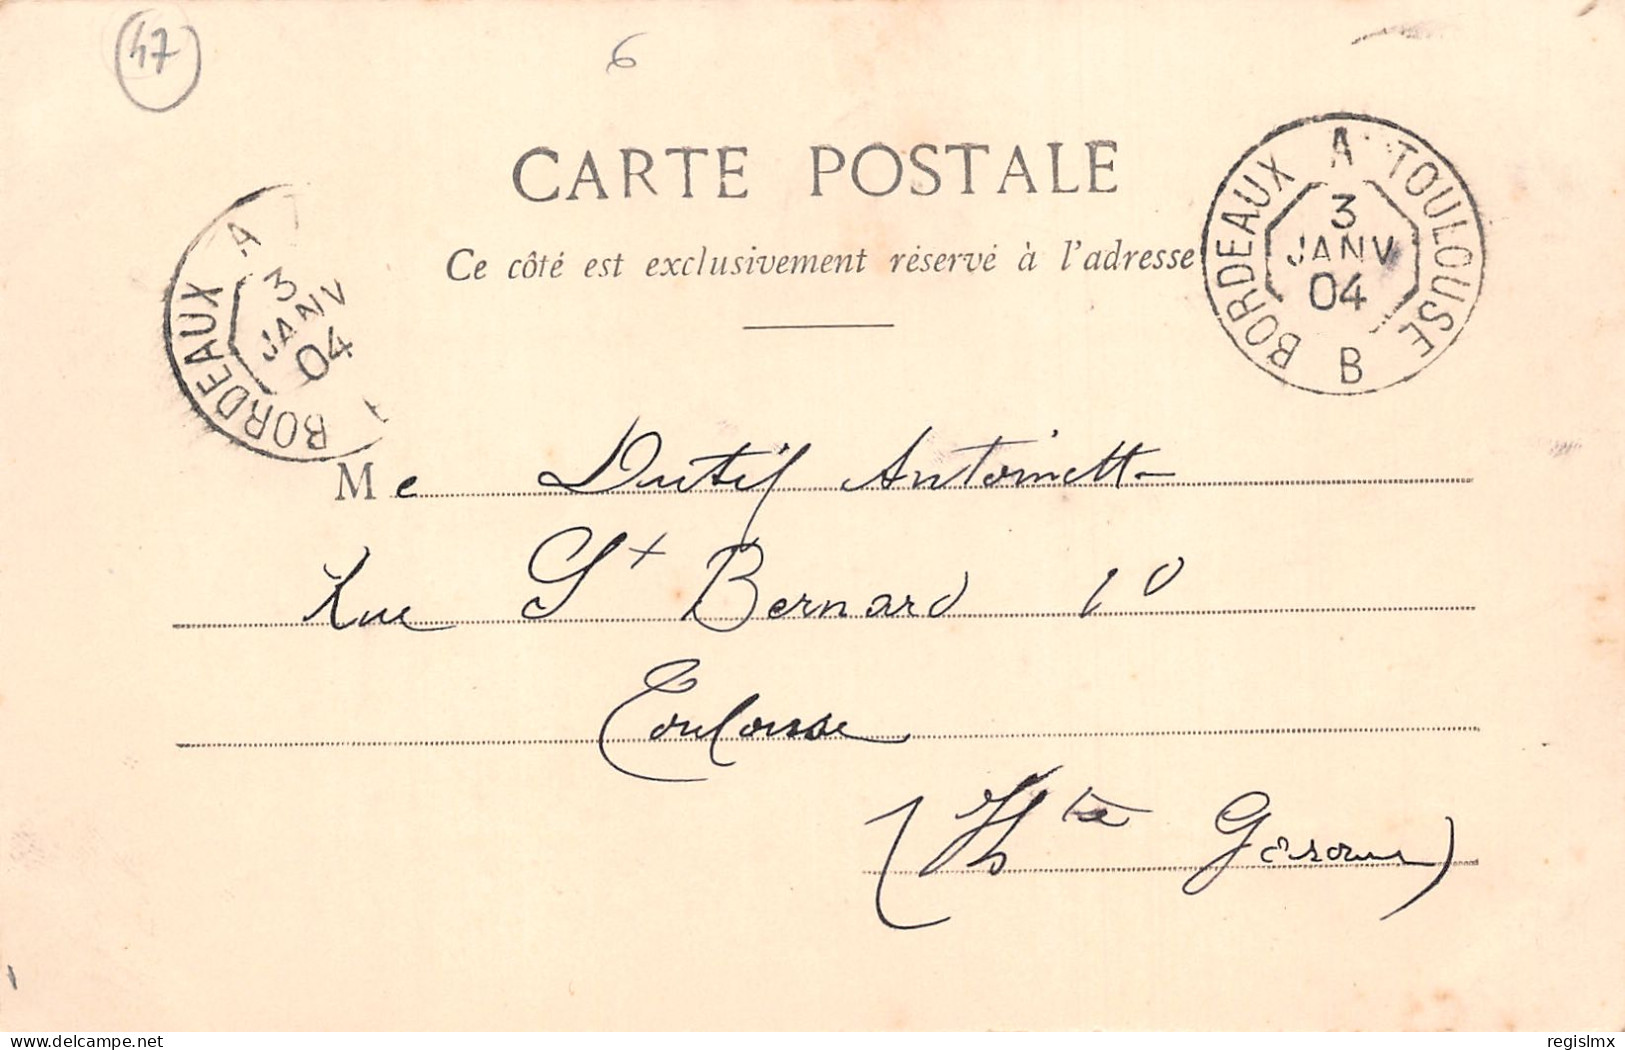 47
6
CARTE POSTALE
Ce côté est exclusivement réservé à l'adresse
BORDEAUX A TOULOUSE
3
JANV
04
B
BORDEAUX A
3
JANV
04
Me Dutif Antoinette
Rue St Bernard 10
Toulouse
(Hte Garonne)
delcampe.net
regislmx